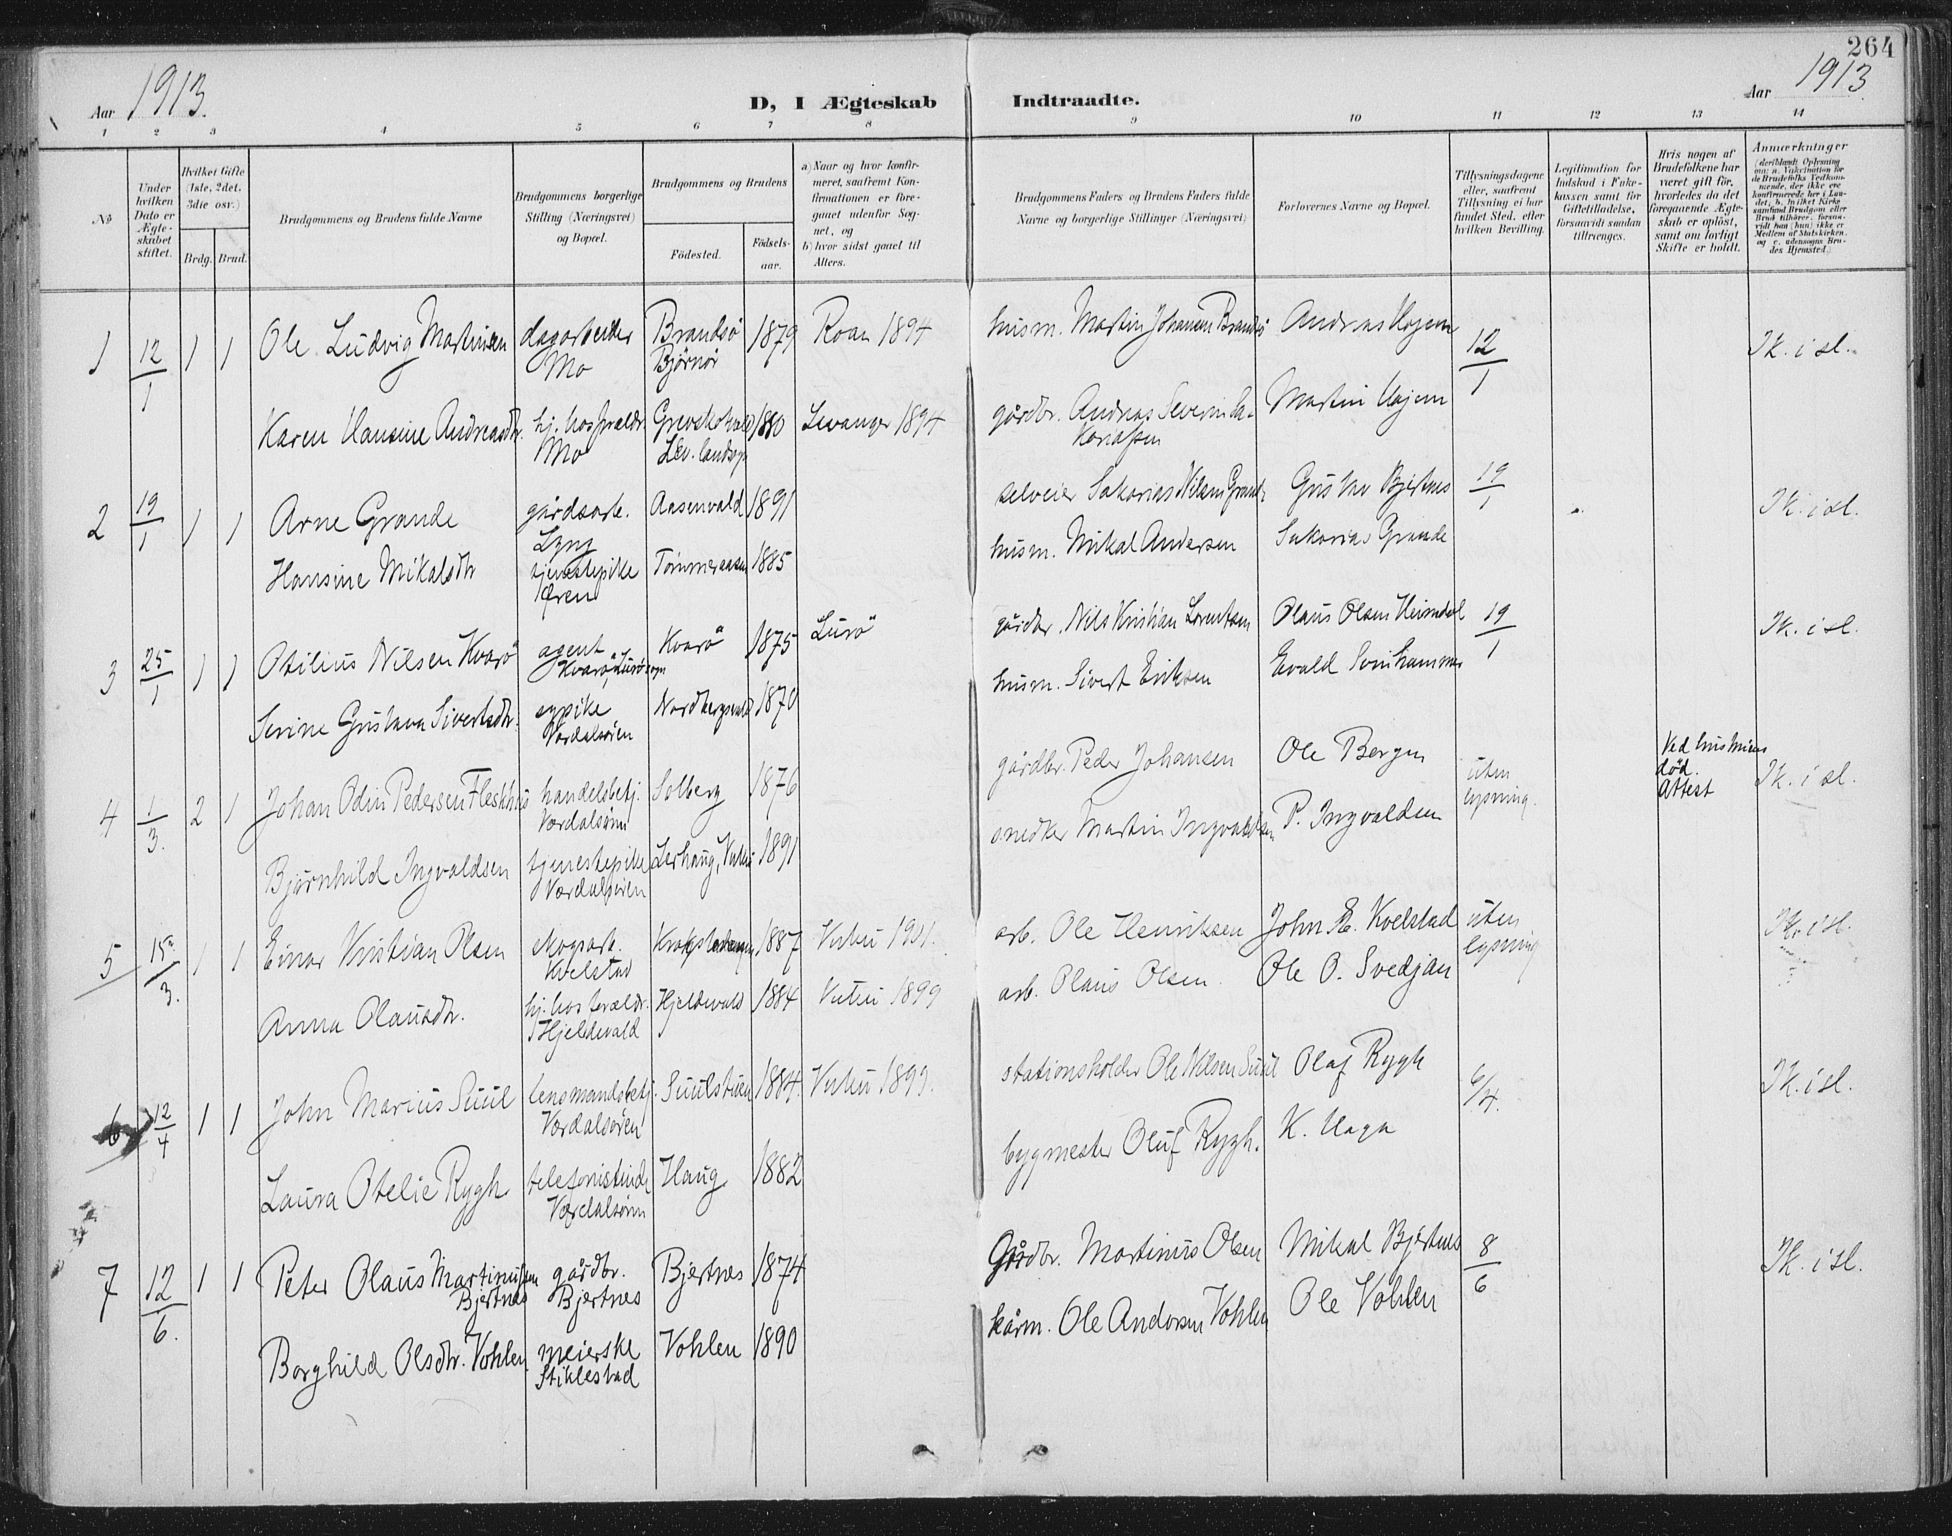 264
Aar 1913.
D, I Ægteskab
Indtraadte.
Aar 1913.
1 2 3 4 5 6 7 8 9 10 11 12 13 14
No
Under hvilken Dato er Ægteskabet stiftet.
Hvilket Gifte (1ste, 2det, 3die osv.)
Brdg. Brud.
Brudgommens og Brudens fulde Navne
Brudgommens borgerlige Stilling (Næringsvei) og Bopæl.
Brudgommens og Brudens
Födested.
Födsels-aar.
a) Naar og hvor konfirmeret, saafremt Konfirmationen er foregaaet udenfor Sognet, og
b) hvor sidst gaaet til Alters.
Brudgommens Faders og Brudens Faders fulde Navne og borgerlige Stillinger (Næringsvei)
Forlovernes Navne og Bopæl.
Tillysningsdagene eller, saafremt Tillysning ei har fundet Sted, efter hvilken Bevilling.
Legitimation for Indskud i Enkekassen samt for Giftetilladelse, forsaavidt saadan tiltrænges.
Hvis nogen af Brudefolkene har været gift för, hvorledes da det foregaaende Ægteskab er oplöst, samt om lovligt Skifte er holdt.
Anmærkninger
1 12/1 1 1 Ole Ludvig Martinsen dagarbeider Mo Brandsö Bjørnör 1879 Roan 1894 husm. Martin Johansen Brandsö Andreas Hojem 12/1 Ik. i sl.
Karen Hansine Andreasdtr. hj. hos foreldr. Mo Grevskotvald Lev. landsogn 1880 Levanger 1894 gårdbr. Andreas Severin Zakariassen Martin Hojem
2 19/1 1 1 Arne Grande gårdsarb. Lyng Aasenvald 1891 selveier Sakarias Nilsen Grande Gustav Bjertnes 19/1 Ik. i sl.
Hansine Mikalsdtr tjenestepike Tömmeraasen 1885 husm. Mikal Andersen Sakarias Grande
3 25/1 1 1 Otilius Nilsen Kvarö agent Kvarö, Lurö sogn Kvarö 1875 Lurö gårdbr. Nils Kristian Lorentsen Olaus Olsen Heimdal 19/1 Ik. i sl.
Serine Gustava Sivertsdtr. sypike Værdalsören Nordbergsvald 1870 husm. Sivert Eriksen Evald Svinhammer
4 1/3. 2 1 Johan Odin Pedersen Fleskhus handelsbetj. Værdalsören Solberg 1876 gårdbr. Peder Johansen Ole Bergen uten lysning. Ved hustruens död. Attest Ik. i sl.
Bjarnhild Ingvaldsen tjenestepike Værdalsören Lerhaug, Vuku 1891 snedker Martin Ingvaldsen P. Ingvaldsen
5 15/3. 1 1 Einar Kristian Olsen skogsarb. Kvelstad 1887 Vuku 1901. arb. Ole Henriksen John E. Kvelstad uten lysning Ik. i sl.
Anna Olausdtr. hj. hos foreldr. Hjeldevald Hjeldevald 1884 Vuku 1899 arb. Olaus Olsen. Ole O. Svedjan
6 12/4 1 1 John Marius Suul lensmandsbetj. Værdalsören Suulstuen 1884. Vuku 1899. stationsholder Ole Nilsen Suul Olaf Rygh 6/4. Ik. i sl.
Laura Otelie Rygh telefonistinde Værdalsören Haug 1882 bygmester Oluf Rygh. K. Haga
7 12/6. 1 1 Peter Olaus Martinussen Bjertnes gårdbr. Bjertnes Bjertnes 1874 Gårdbr. Martinus Olsen Mikal Bjertnes 8/6 Ik. i sl.
Borghild Olsdtr. Vohlen meierske Stiklestad Vohlen 1890 kårm. Ole Andersen Vohlen Ole Vohlen